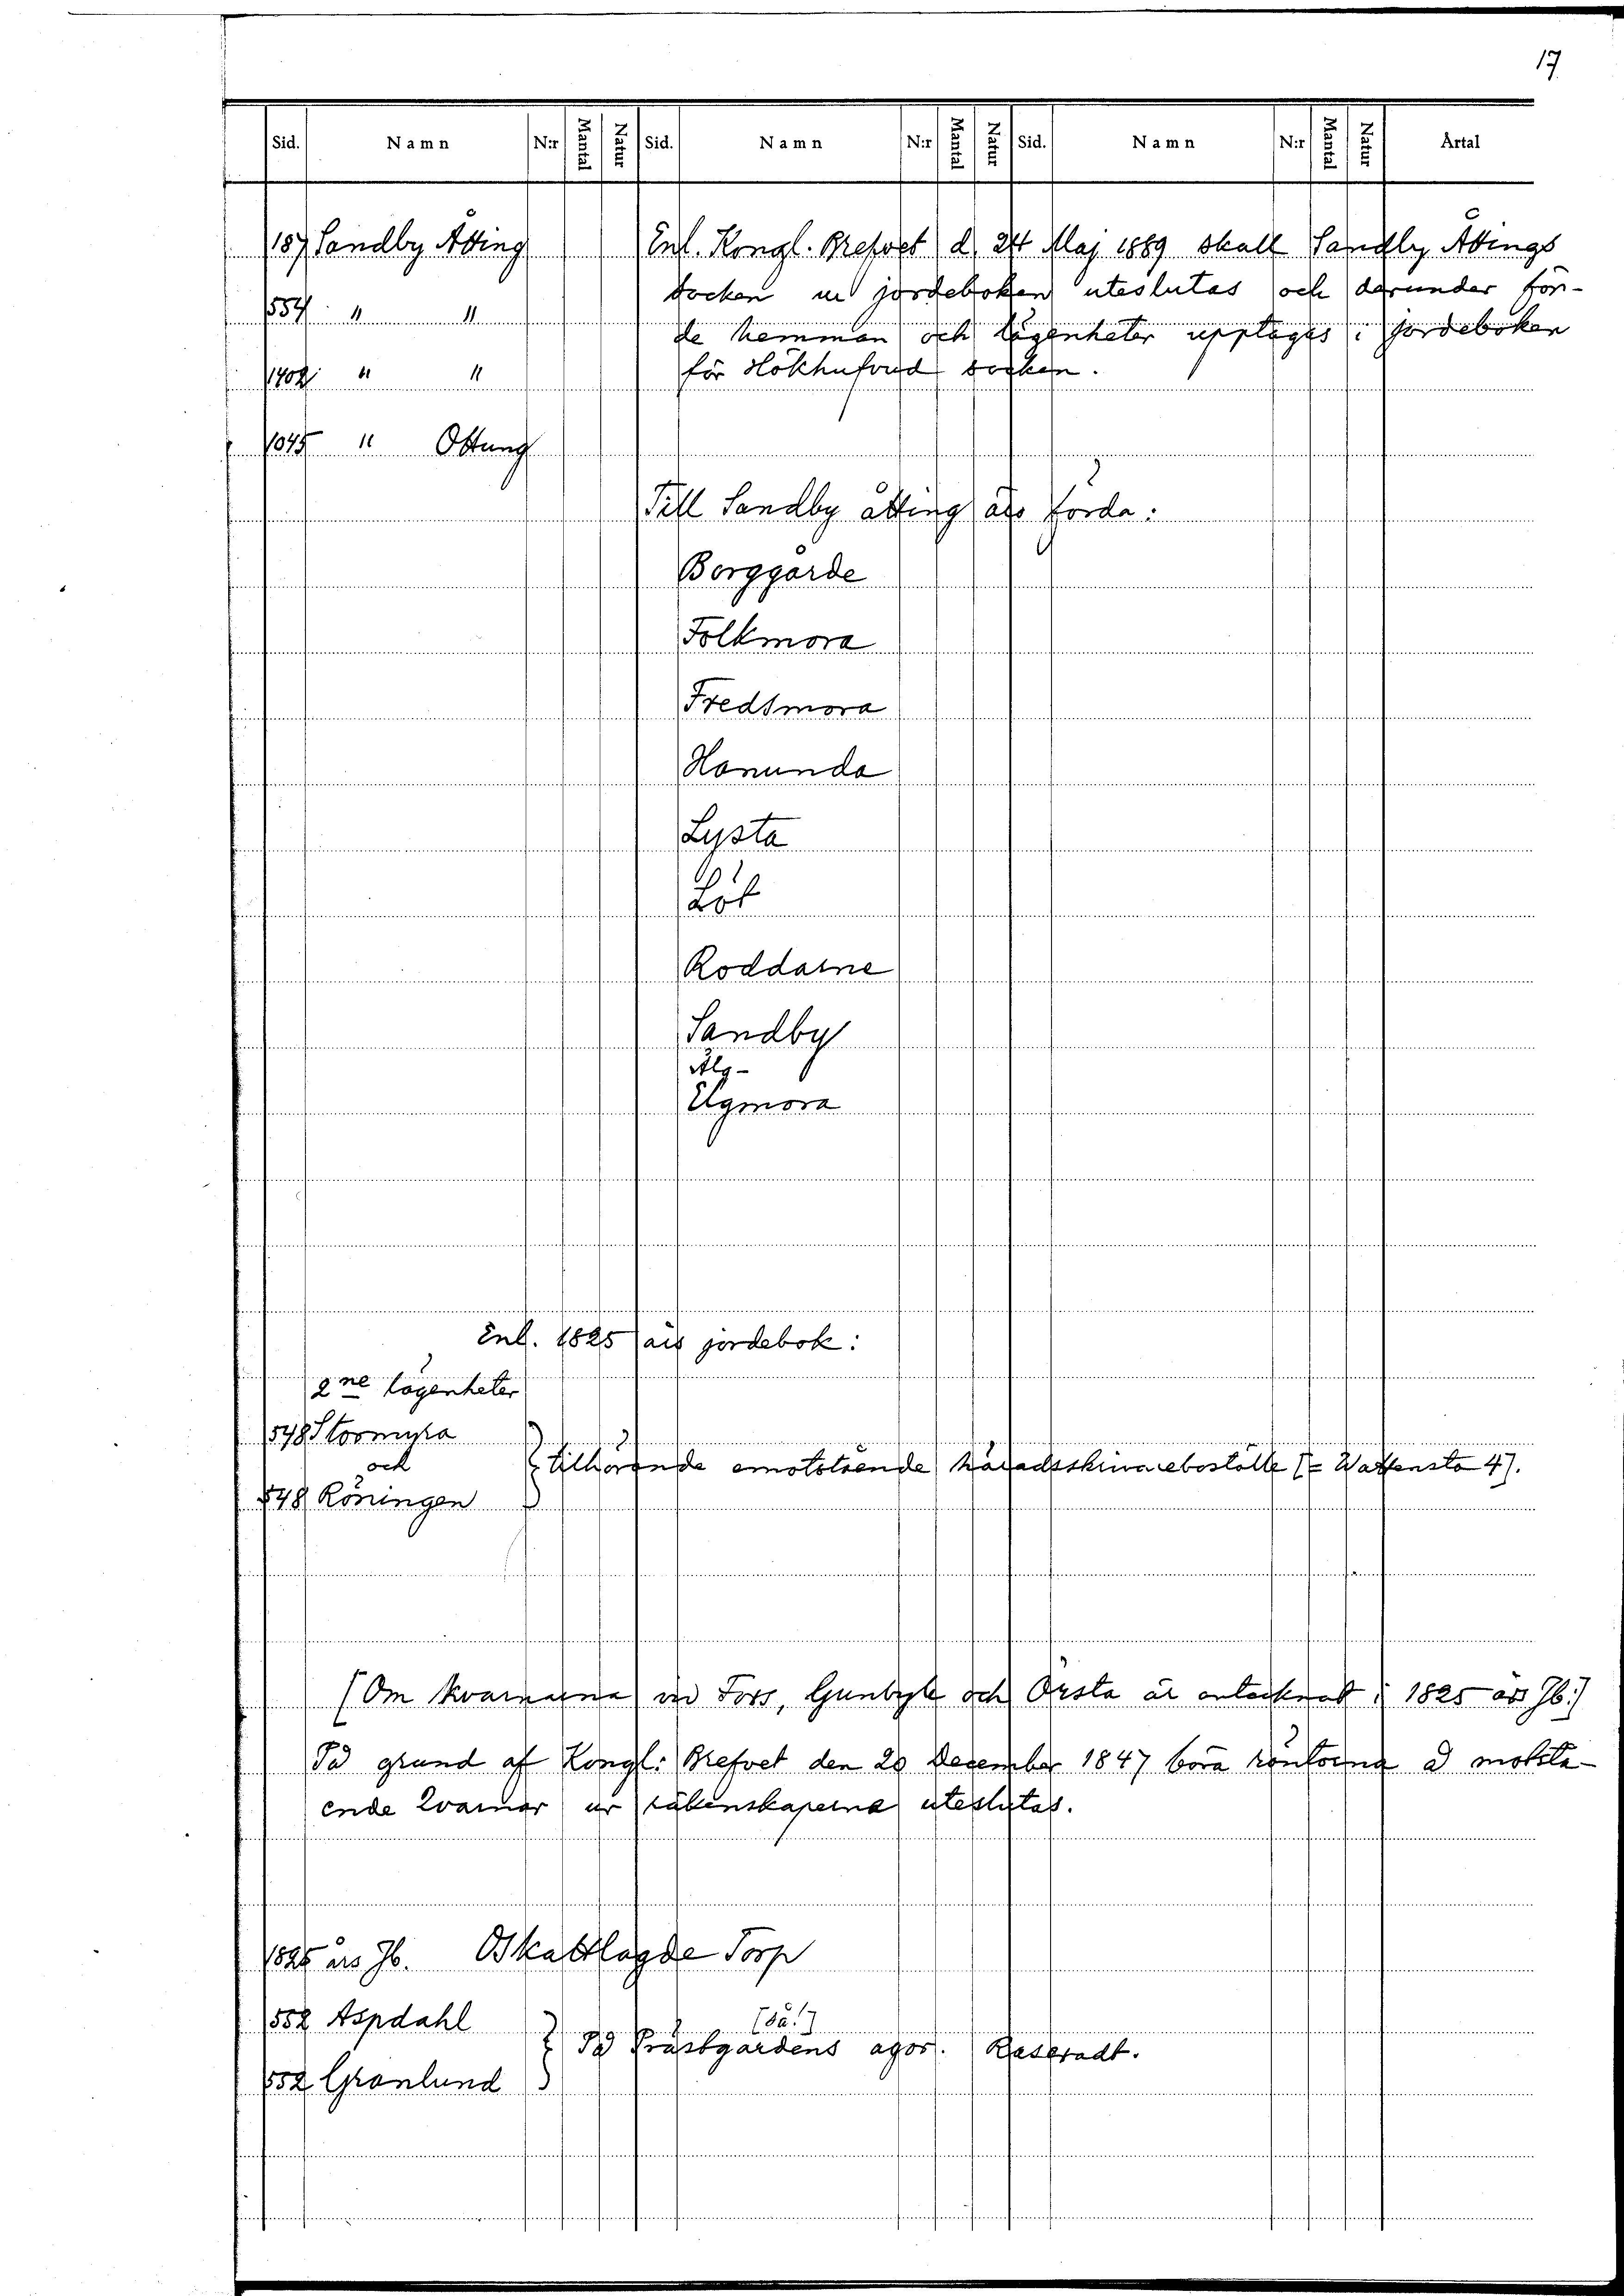 17
Sid. Namn N:r Mantal Natur Sid. Namn N:r Mantal Natur Sid. Namn N:r Mantal Natur Årtal
187 Sandby Åtting
Enl. Kongl. Brefvet d. 24 Maj 1889 skall Sandby Åttings
socken ur jordeboken uteslutas och darunder för-
554 " "
de hemman och lägenheter upptages i jordeboken
1402 " "
för Hökhufvud socken.
1045 " Ottung
Till Sandby åtting äro förda:
Borggårde
Folkmora
Fredsmora
Hanunda
Lysta
Löt
Roddarne
Sandby
Älg-
Elgmora
Enl. 1825 års jordebok:
2ne lägenheter
548 Stormyra
och
} tillhörande emotstående häradsskrivareboställe [= Wattensta 4].
548 Röningen
[Om kvarnarna vid Forss, Gunbyle och Örsta är antecknat i 1825 års Jb:]
På grund af Kongl: Brefvet den 20 December 1847 böra räntorna å motstå-
ende Qvarnar ur räkenskaperna uteslutas.
1825 års Jb. Oskattlagde Torp
552 Aspdahl
[så!]
} På Prästgardens agor. Raseradt.
552 Granlund